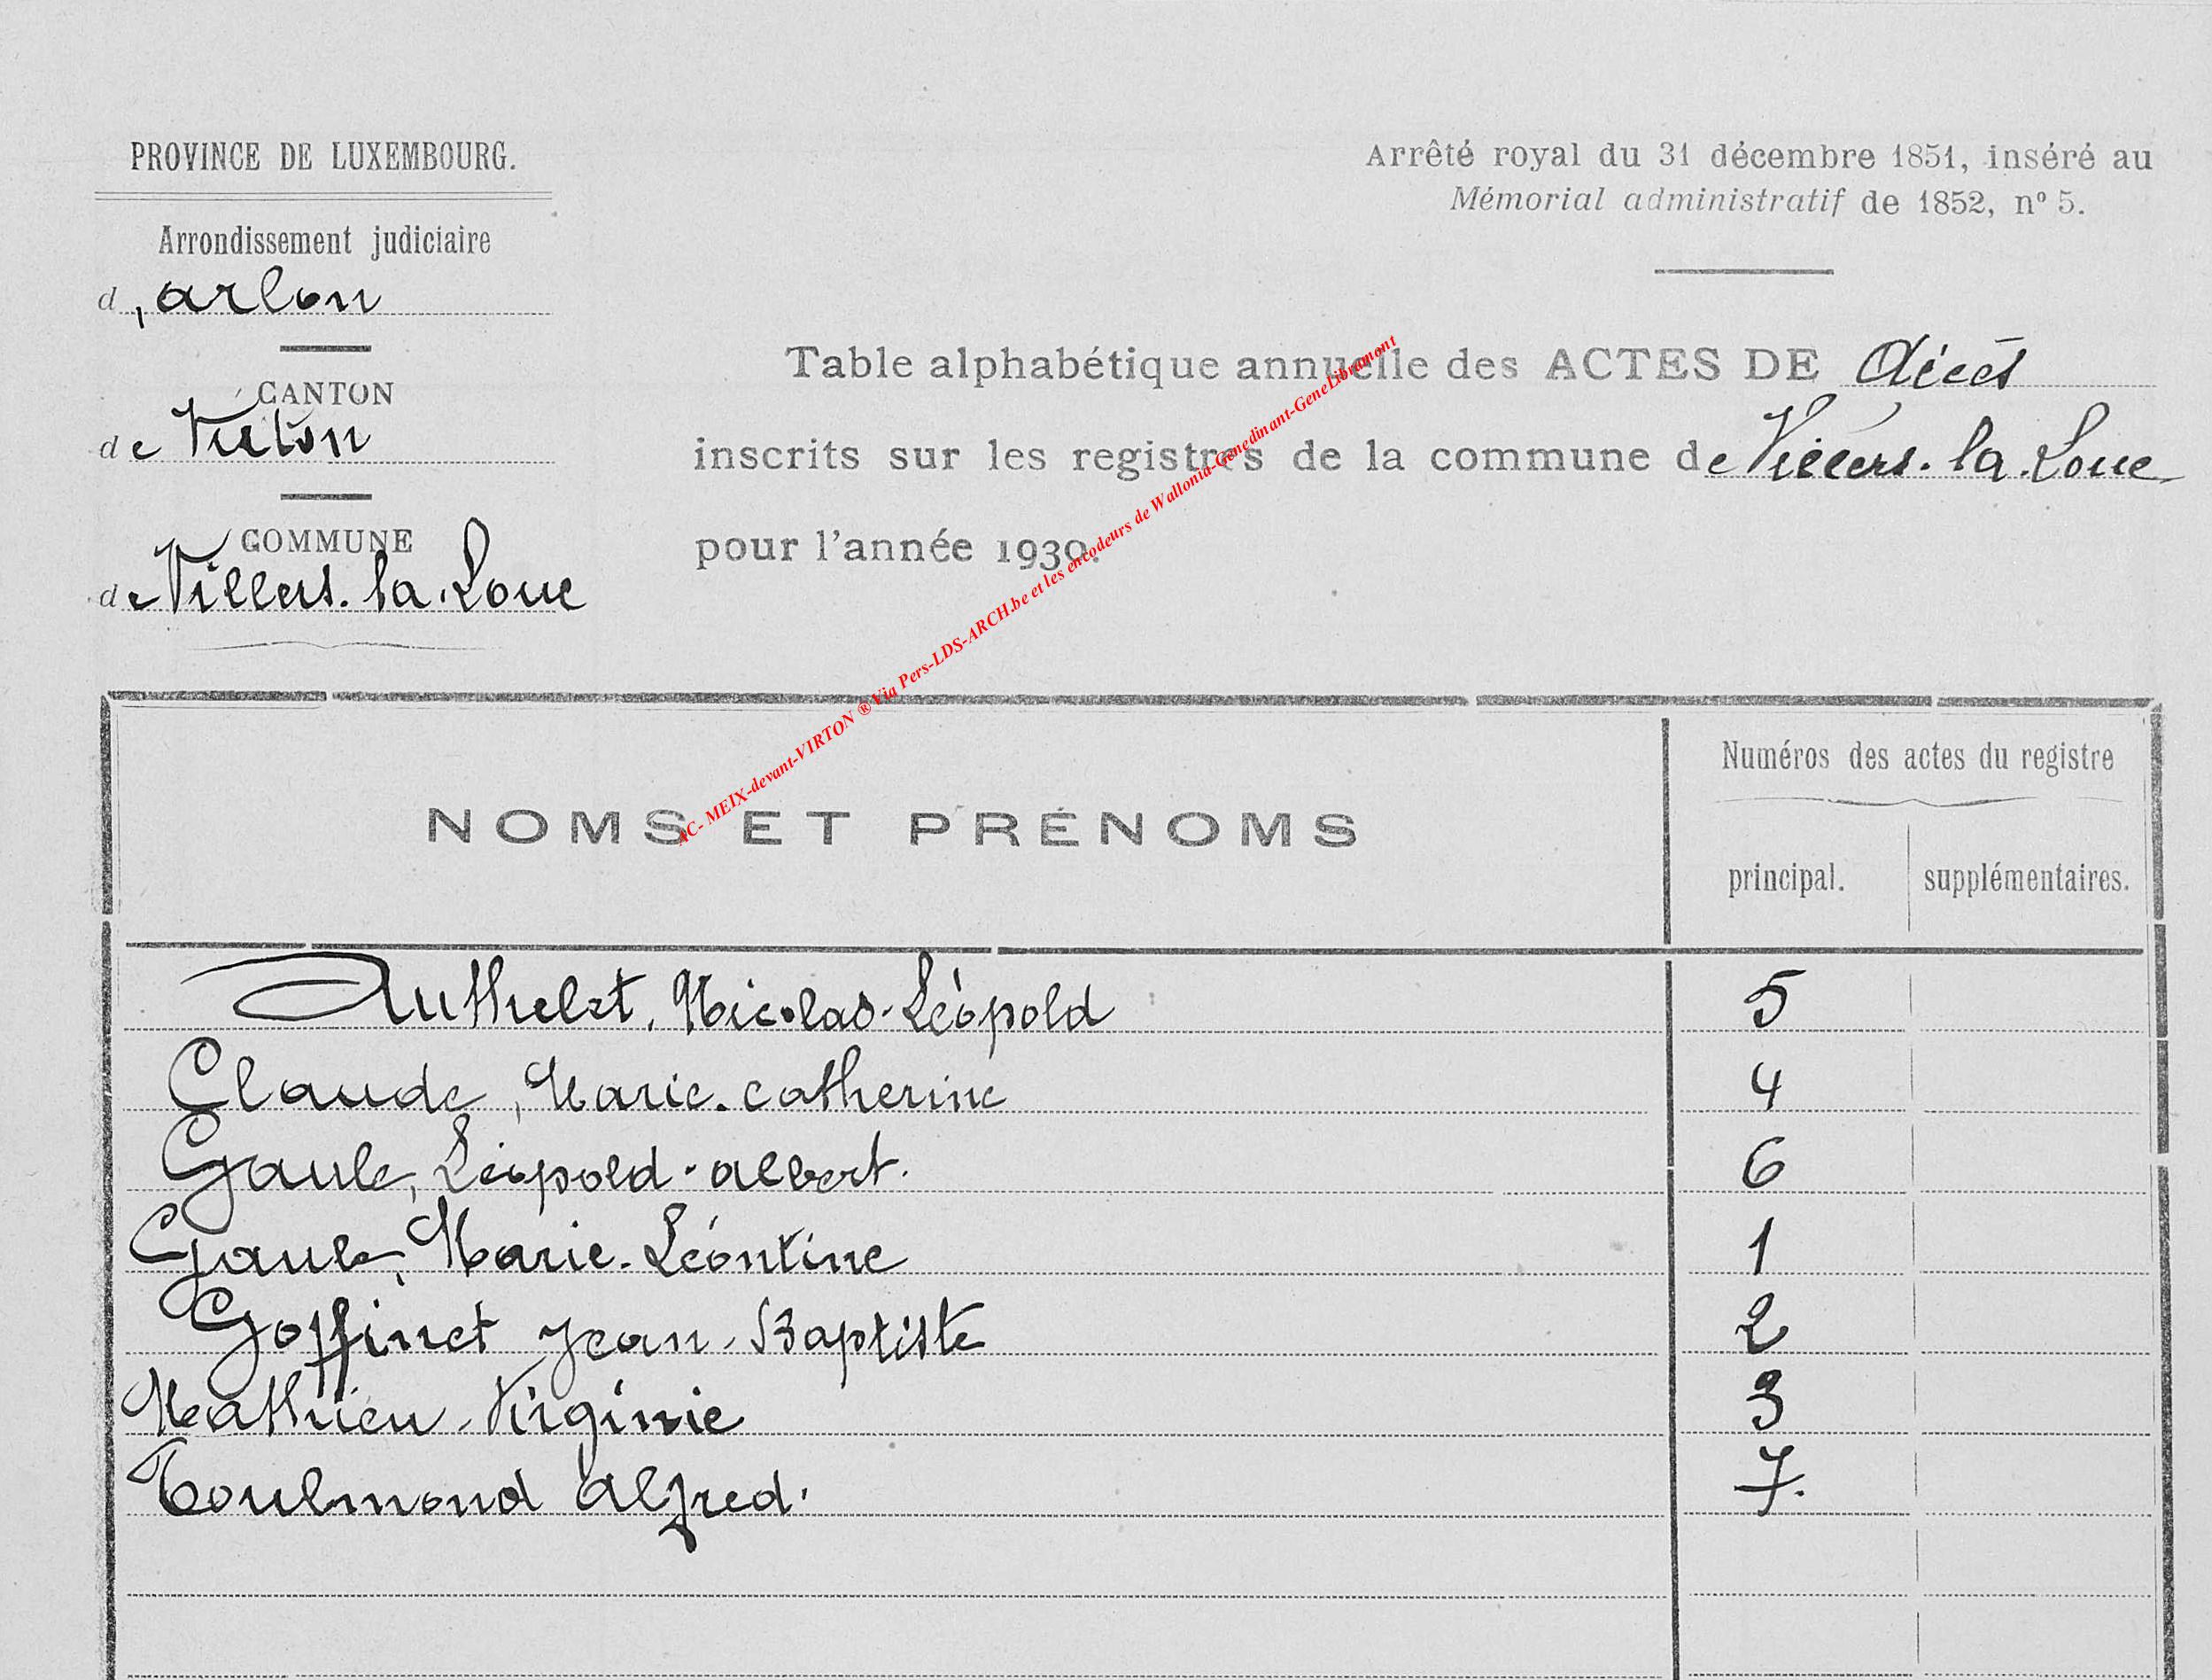 PROVINCE DE LUXEMBOURG.
Arrondissement judiciaire
d'arlon
CANTON
de Virton
COMMUNE
de Villers-la-Loue
Arrêté royal du 31 décembre 1851, inséré au
Mémorial administratif de 1852, nº 5.
Table alphabétique annuelle des ACTES DE décès
inscrits sur les registres de la commune de Villers-la-Loue
pour l'année 1930.
AC- MEIX-devant-VIRTON ® Via Pers-LDS-ARCH.be et les encodeurs de Wallonia-Genedinant-GeneLibramont
NOMS ET PRÉNOMS
Numéros des actes du registre
principal. supplémentaires.
Authelet, Nicolas-Léopold 5
Claude, Marie-Catherine 4
Gaule, Léopold-Albert. 6
Gaule, Marie-Léontine 1
Goffinet Jean-Baptiste 2
Mathieu-Virginie 3
Toulmond Alfred. 7.